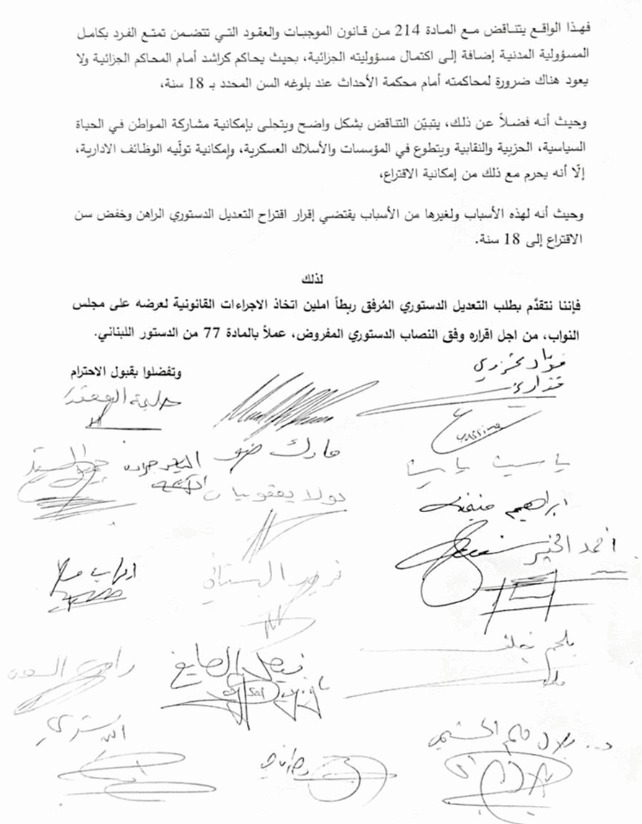 فهذا الواقع يتناقض مع المادة 214 من قانون الموجبات والعقود التي تتضمن تمتع الفرد بكامل
المسؤولية المدنية إضافة إلى اكتمال مسؤوليته الجزائية، بحيث يحاكم كراشد أمام المحاكم الجزائية ولا
يعود هناك ضرورة لمحاكمته أمام محكمة الأحداث عند بلوغه السن المحدد بـ 18 سنة،
وحيث أنه فضلاً عن ذلك، يتبيّن التناقض بشكل واضح ويتجلى بإمكانية مشاركة المواطن في الحياة
السياسية، الحزبية والنقابية ويتطوع في المؤسسات والأسلاك العسكرية، وإمكانية تولّيه الوظائف الادارية،
إلّا أنه يحرم مع ذلك من إمكانية الاقتراع،
وحيث أنه لهذه الأسباب ولغيرها من الأسباب يقتضي إقرار اقتراح التعديل الدستوري الراهن وخفض سن
الاقتراع إلى 18 سنة.
لذلك
فإننا نتقدّم بطلب التعديل الدستوري المُرفق ربطاً املين اتخاذ الاجراءات القانونية لعرضه على مجلس
النواب، من اجل اقراره وفق النصاب الدستوري المفروض، عملاً بالمادة 77 من الدستور اللبناني.
وتفضلوا بقبول الاحترام
فؤاد مخزومي
مارك ضو
ياسين ياسين
بولا يعقوبيان
ابراهيم منيمنة
احمد الخير
فيصل الصايغ